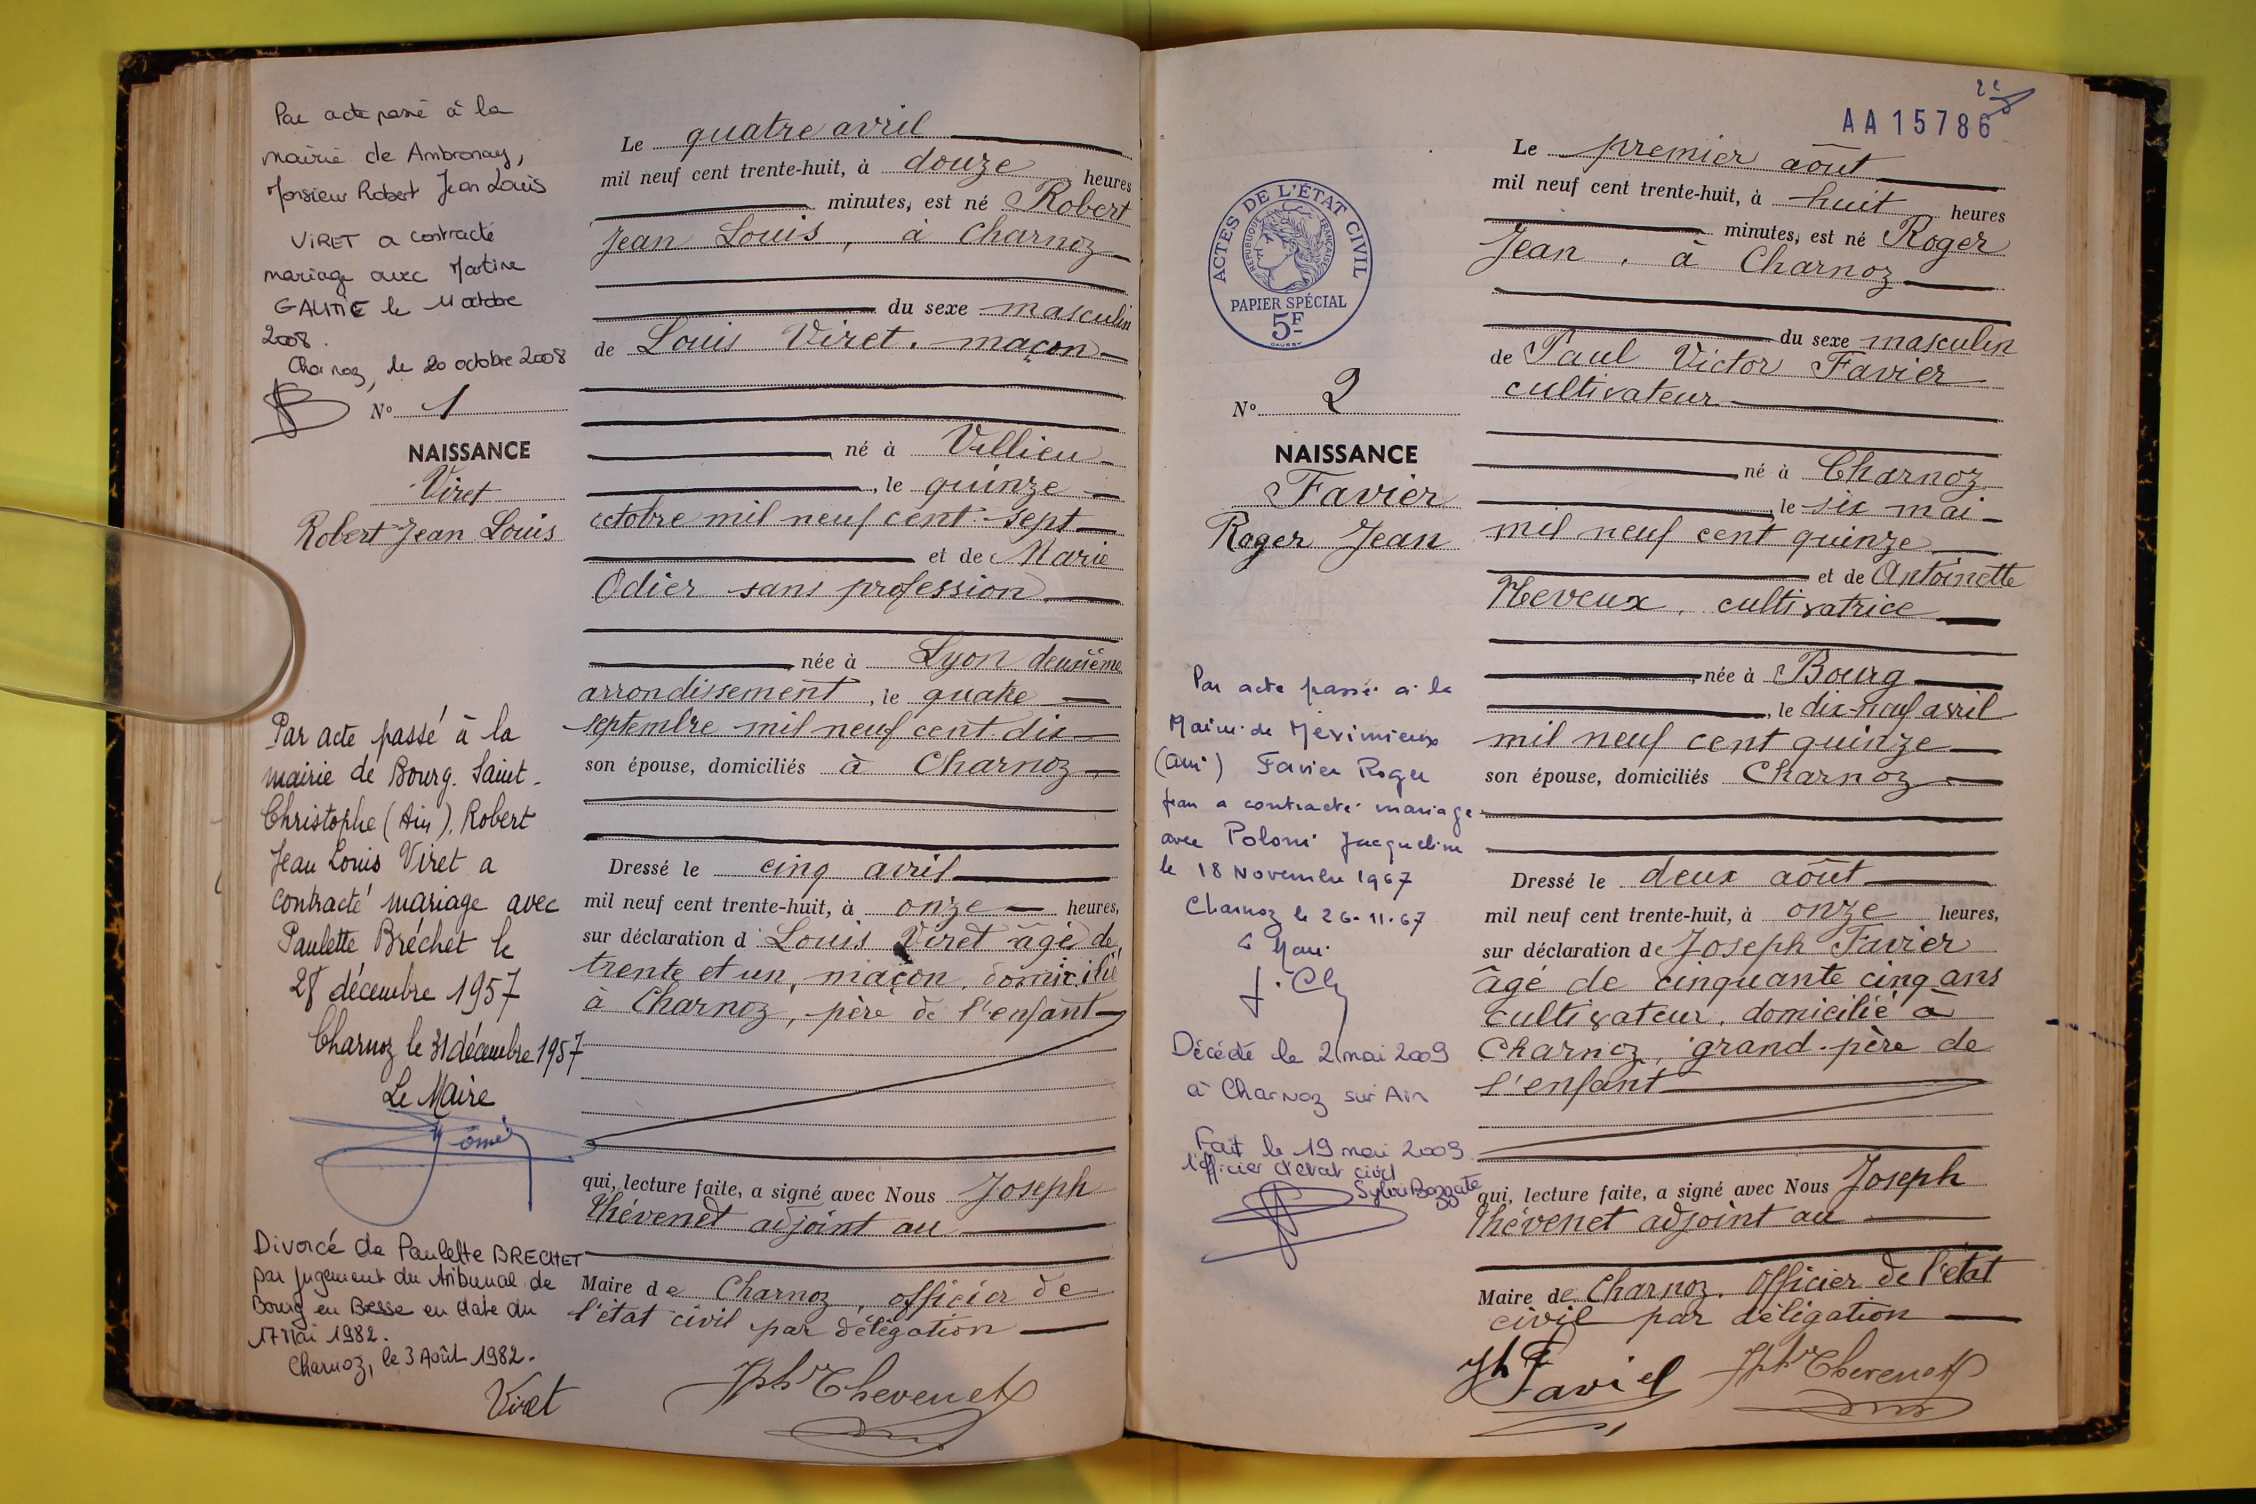 Par acte passé à la
mairie de Ambronay,
Monsieur Robert Jean Louis
VIRET a contracté
mariage avec Martine
le 11 octobre
2008.
Charnoz, le 20 octobre 2008
N° 1
NAISSANCE
Viret
Robert Jean Louis
Par acte passé à la
mairie de Bourg. Saint-
Christophe (Ain), Robert
Jean Louis Viret a
contracté mariage avec
Paulette Bréchet le
28 décembre 1957
Charnoz le 31 décembre 1957
Le Maire
Divorcé de Paulette BRECHET
par jugement du tribunal de
Bourg en Bresse en date du
17 Mai 1982.
Charnoz, le 3 Août 1982.
Viret
Le quatre avril
mil neuf cent trente-huit, à douze heures
minutes, est né Robert
Jean Louis, à Charnoz
du sexe masculin
de Louis Viret, maçon
né à Villieu
, le quinze
octobre mil neuf cent-sept
et de Marie
Odier sans profession
née à Lyon deuxième
arrondissement, le quatre
septembre mil neuf cent dix
son épouse, domiciliés à Charnoz
Dressé le cinq avril
mil neuf cent trente-huit, à onze heures,
sur déclaration d Louis Viret âgé de
trente et un, maçon, domicilié
à Charnoz, père de l'enfant
qui, lecture faite, a signé avec Nous Joseph
Thévenet adjoint au
Maire de Charnoz, officier de
l'état civil par délégation
Jph Thevenet
22
AA 15786
ACTES DE L'ÉTAT CIVIL
RÉPUBLIQUE FRANÇAISE
PAPIER SPÉCIAL
5F
N° 2
NAISSANCE
Favier
Roger Jean
Par acte passé à la
Mairie de Meximieux
(Ain) Favier Roger
Jean a contracté mariage
avec Poloni Jacqueline
le 18 Novembre 1967
Charnoz le 26.11.67
Décédé le 2 mai 2009
à Charnoz sur Ain
Fait le 19 mai 2009
l'officier d'état civil
Le premier août
mil neuf cent trente-huit, à huit heures
minutes, est né Roger
Jean, à Charnoz
du sexe masculin
de Paul Victor Favier
cultivateur
né à Charnoz
, le six mai
mil neuf cent quinze
et de Antoinette
Neveux, cultivatrice
née à Bourg
, le dix-neuf avril
mil neuf cent quinze
son épouse, domiciliés Charnoz
Dressé le deux août
mil neuf cent trente-huit, à onze heures,
sur déclaration de Joseph Favier
âgé de cinquante cinq ans
cultivateur, domicilié à
Charnoz, grand-père de
l'enfant
qui, lecture faite, a signé avec Nous Joseph
Thévenet adjoint au
Maire de Charnoz, officier de l'état
civil par délégation
Jh Favier Jph Thevenet